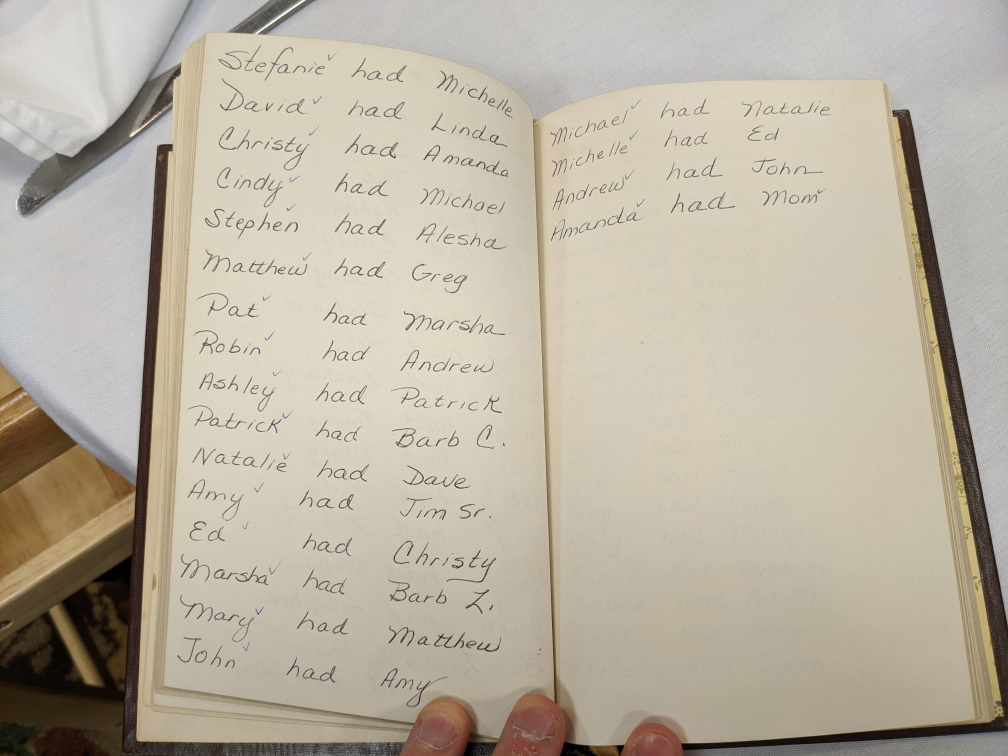 Stefanie had Michelle
David had Linda
Christy had Amanda
Cindy had Michael
Stephen had Alesha
Matthew had Greg
Pat had Marsha
Robin had Andrew
Ashley had Patrick
Patrick had Barb C.
Natalie had Dave
Amy had Jim Sr.
Ed had Christy
Marsha had Barb Z.
Mary had Matthew
John had Amy
Michael had Natalie
Michelle had Ed
Andrew had John
Amanda had Mom